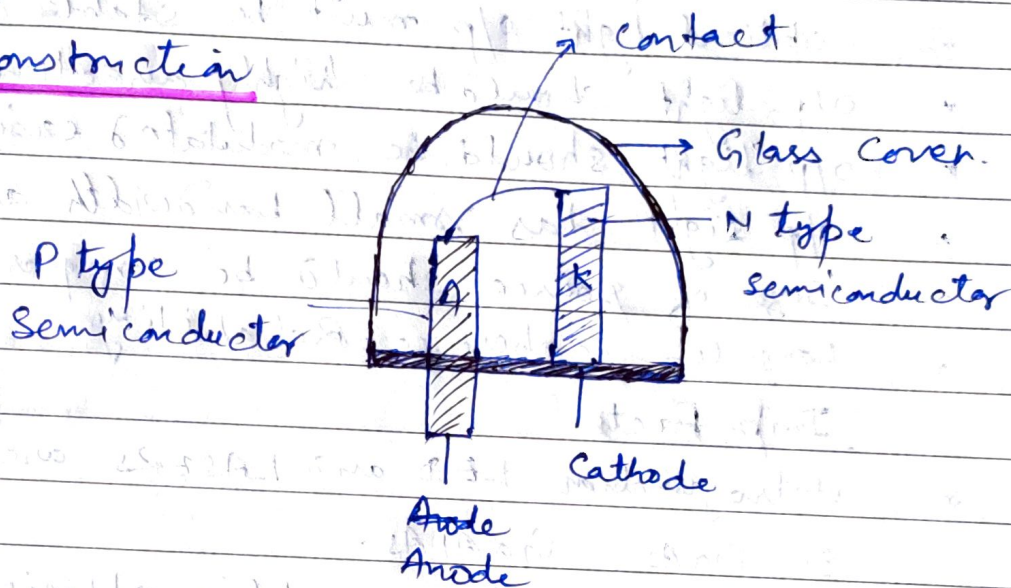 onstruction
contact.
Glass Cover.
N type
semiconductor
P type
Semiconductor
A
K
Cathode
Anode
Anode